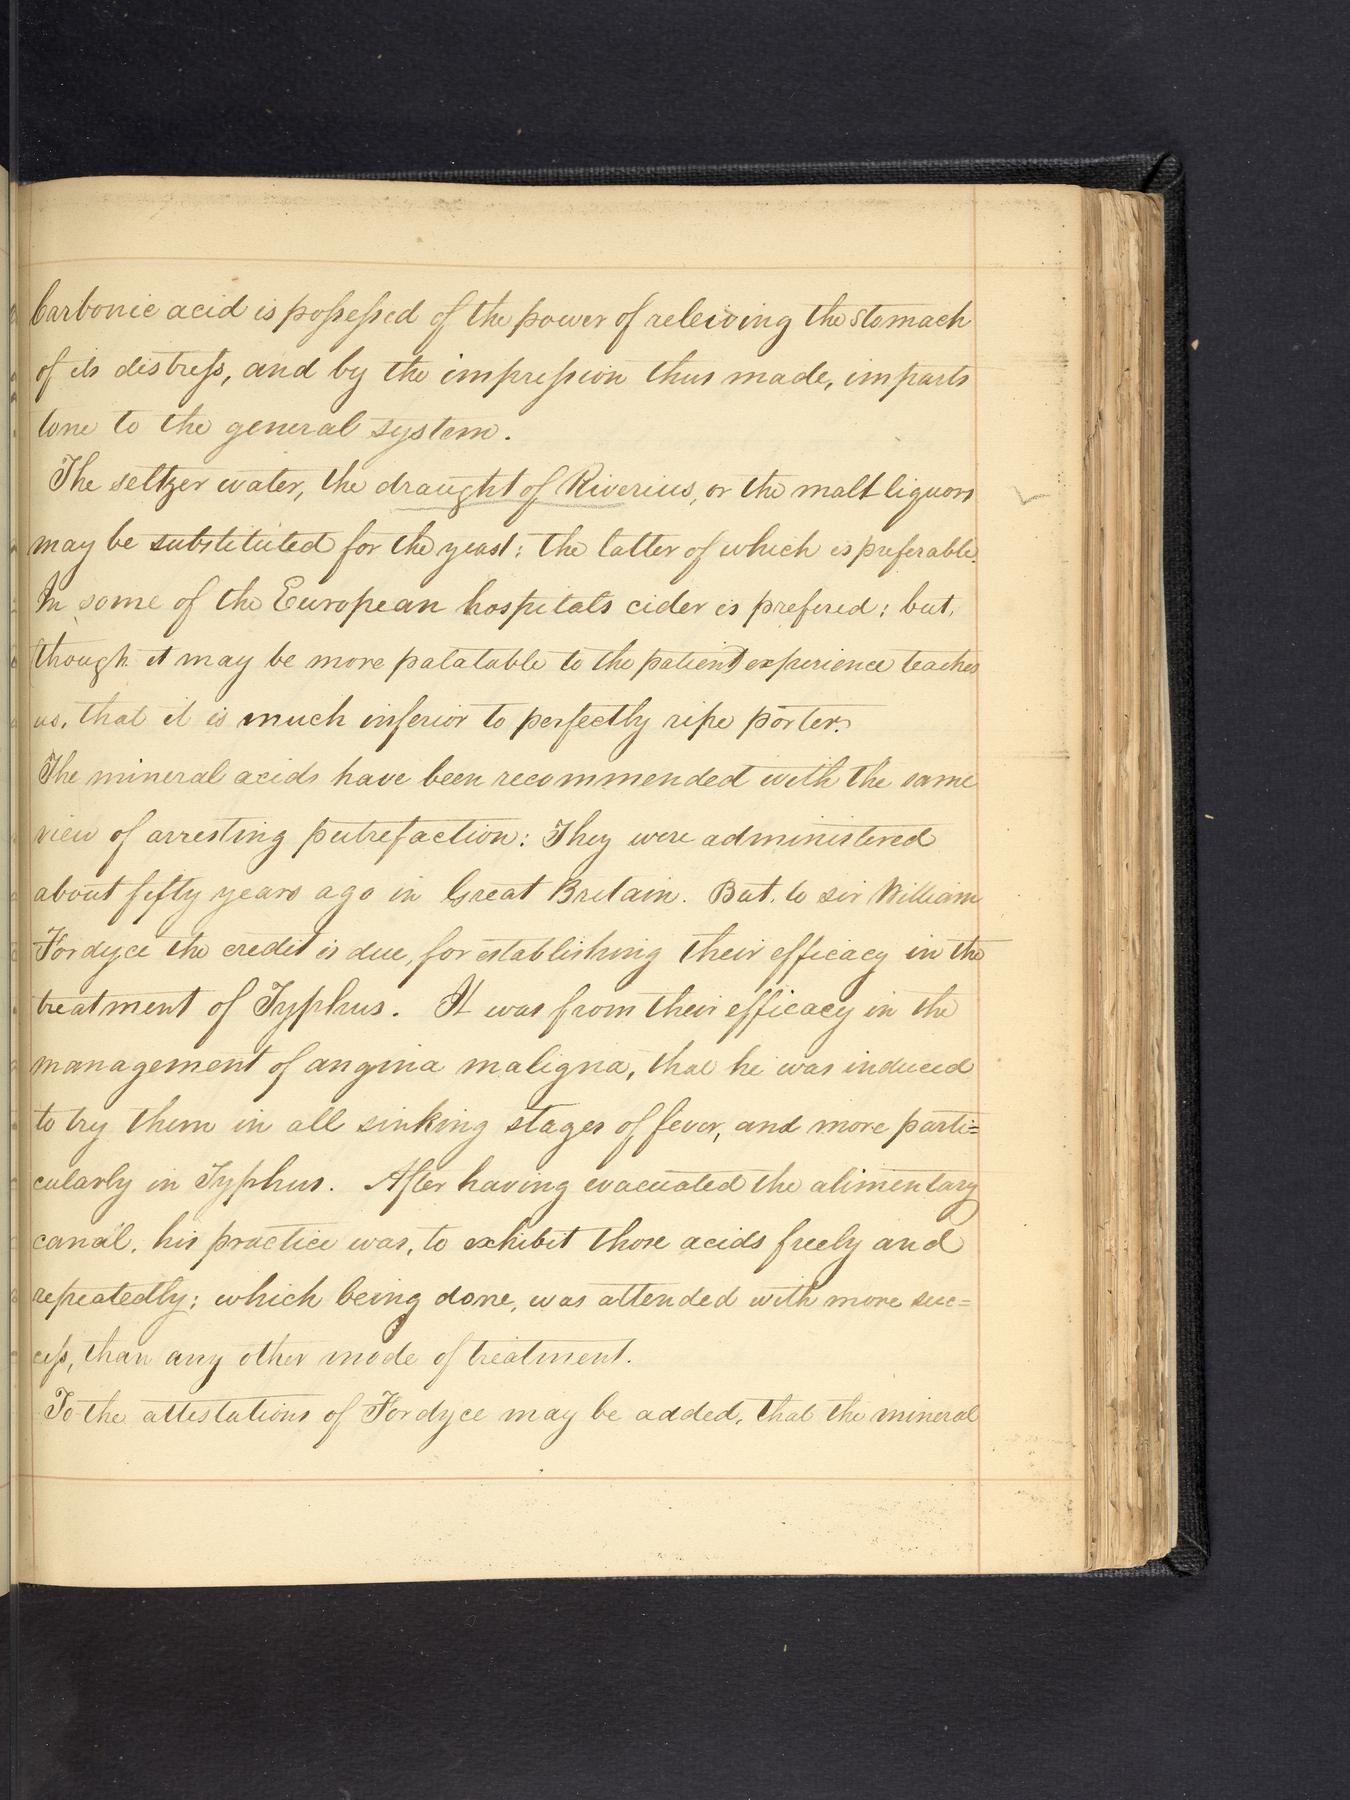 Carbonic acid is possessed of the power of releiving the stomach
of its distress, and by the impression thus made, imparts
tone to the general system.
The seltzer water, the draught of Riverius, or the malt liquors
may be substituted for the yeast; the latter of which is preferable.
In some of the European hospitals cider is prefered; but,
though it may be more palatable to the patient experience teaches
us, that it is much inferior to perfectly ripe porter.
The mineral acids have been recommended with the same
view of arresting putrefaction: They were administered
about fifty years ago in Great Britain. But, to sir William
Fordyce the credit is due, for establishing their efficacy in the
treatment of Typhus. It was from their efficacy in the
management of angina maligna, that he was induced
to try them in all sinking stages of fever, and more parti=
cularly in Typhus. After having evacuated the alimentary
canal, his practice was, to exhibit those acids freely and
repeatedly; which being done, was attended with more suc=
cess, than any other mode of treatment.
To the attestations of Fordyce may be added, that the mineral